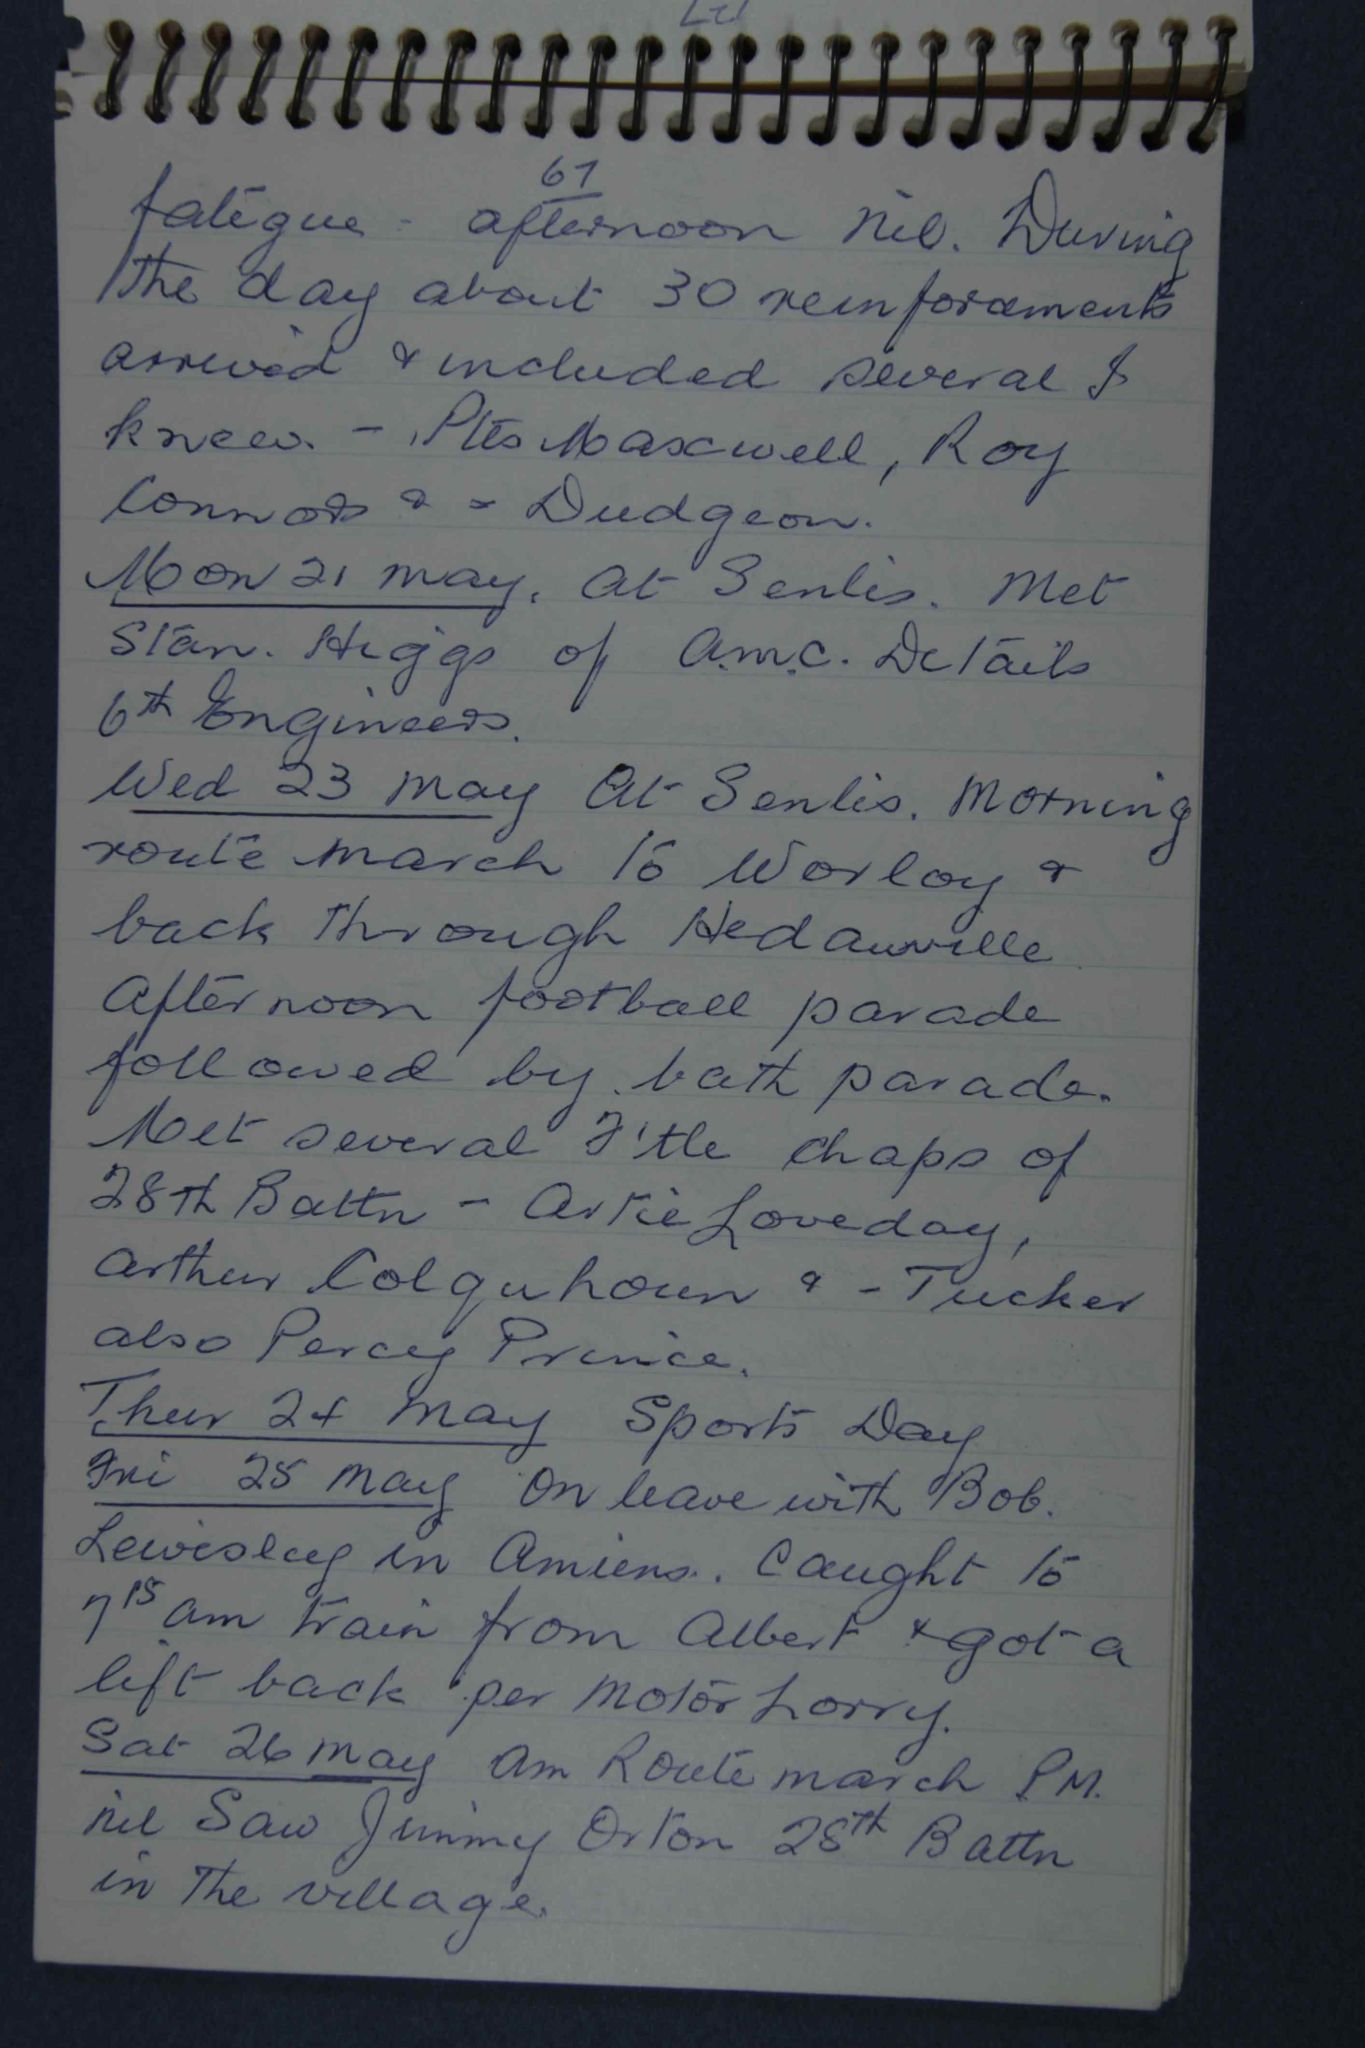 67
fatigue - afternoon nil. During
the day about 30 reinforcements
arrived & included several I
knew. - Ptes Maxwell, Roy
Connors & - Dudgeon.
Mon 21 May. At Senlis. Met
Stan. Higgs of A.M.C. Details
6th Engineers.
Wed 23 May At Senlis. Morning
route march to Worloy &
back through Hedauville
Afternoon football parade
followed by bath parade.
Met several F'tle chaps of
28th Battn - Artie Loveday,
Arthur Colquhoun & - Tucker
also Percy Prince.
Thur 24 May Sports Day
Fri 25 May On leave with Bob.
Lewisley in Amiens. Caught to
7 15 am train from Albert & got a
lift back per Motor Lorry.
Sat 26 May am Route march PM.
nil Saw Jimmy Orton 28th Battn
in the village.